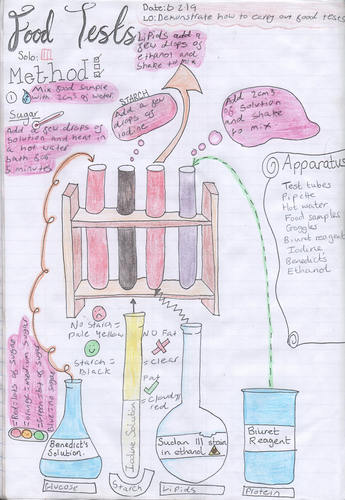 Food Tests
Date: 6 2 19
LO: Demonstrate how to carry out food tests
Solo:
Method:
① Mix food sample
with 2cm³ of water
Sugar
Add a few drops of
solution and heat in
a hot water
bath for 5
minutes
STARCH
Add a few
drops of
iodine
Lipids add a
few drops of
ethanol and
shake to mix
Add 2cm³
of solution
and shake
to mix
Apparatus
Test tubes
Pipette
Hot water
Food samples
Goggles
Biuret reagent
Iodine
Benedict's
Ethanol
No Starch=
pale yellow
Starch =
Black
NO Fat
= Clear
Fat
= Cloudy/
red
=Red: lots of sugar
Blue: no sugar
Benedict's
Solution.
Glucose
Iodine Solution
Starch
Sudan III stain
in ethanol
Lipids
Biuret
Reagent
Protein